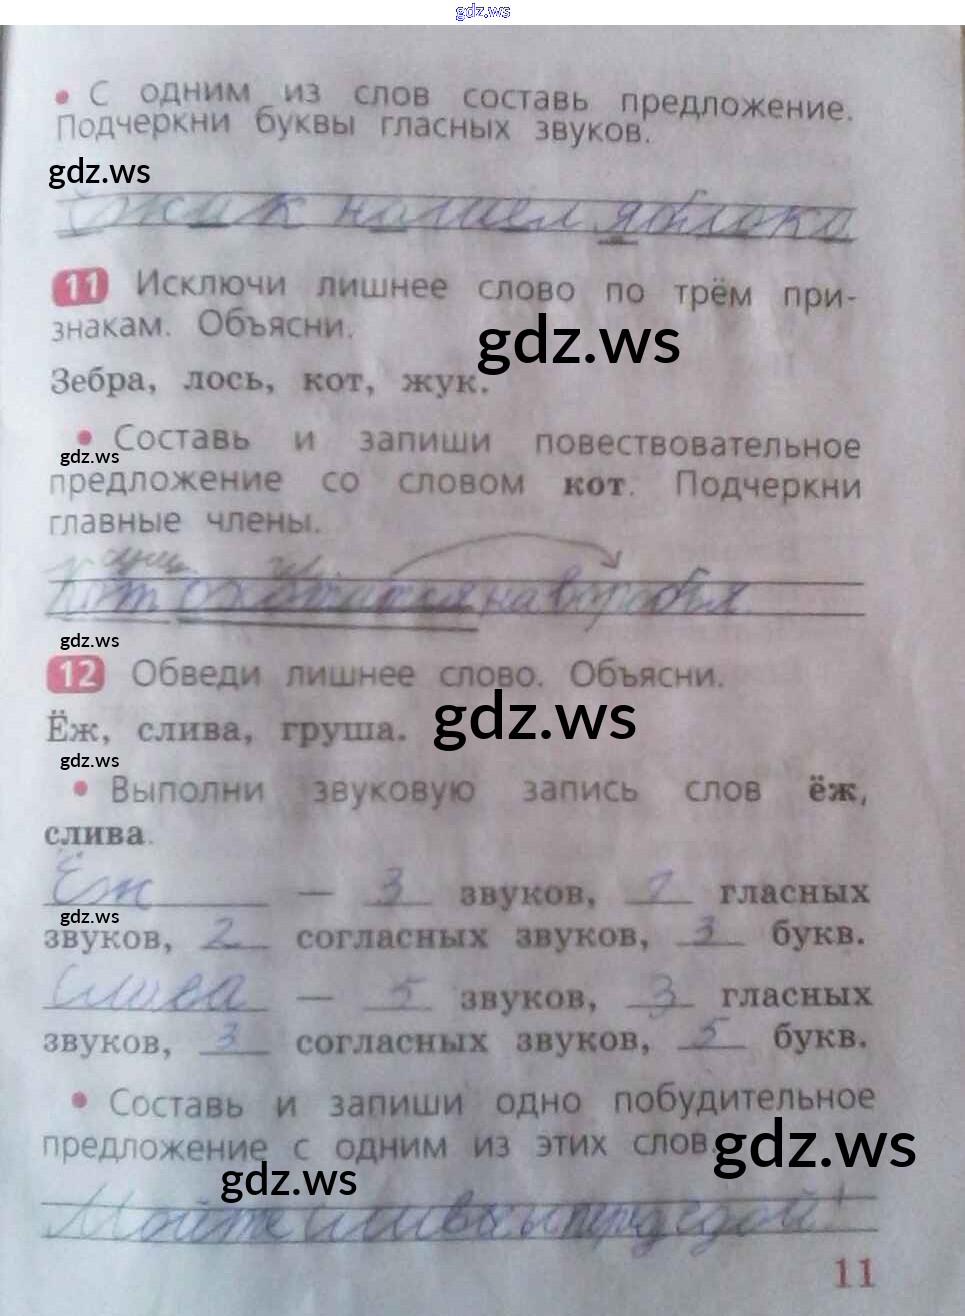 gdz.ws
• С одним из слов составь предложение.
Подчеркни буквы гласных звуков.
gdz.ws
Ёжик нашёл яблоко
11 Исключи лишнее слово по трём при-
знакам. Объясни.
gdz.ws
Зебра, лось, кот, жук.
• Составь и запиши повествовательное
gdz.ws
предложение со словом кот. Подчеркни
главные члены.
Кот охотится на воробья
gdz.ws
12 Обведи лишнее слово. Объясни.
gdz.ws
Ёж, слива, груша.
gdz.ws
• Выполни звуковую запись слов ёж,
слива.
Ёж — 3 звуков, 1 гласных
gdz.ws
звуков, 2 согласных звуков, 3 букв.
Слива — 5 звуков, 3 гласных
звуков, 3 согласных звуков, 5 букв.
• Составь и запиши одно побудительное
предложение с одним из этих слов.
gdz.ws
gdz.ws
Мойте сливы перед едой!
11